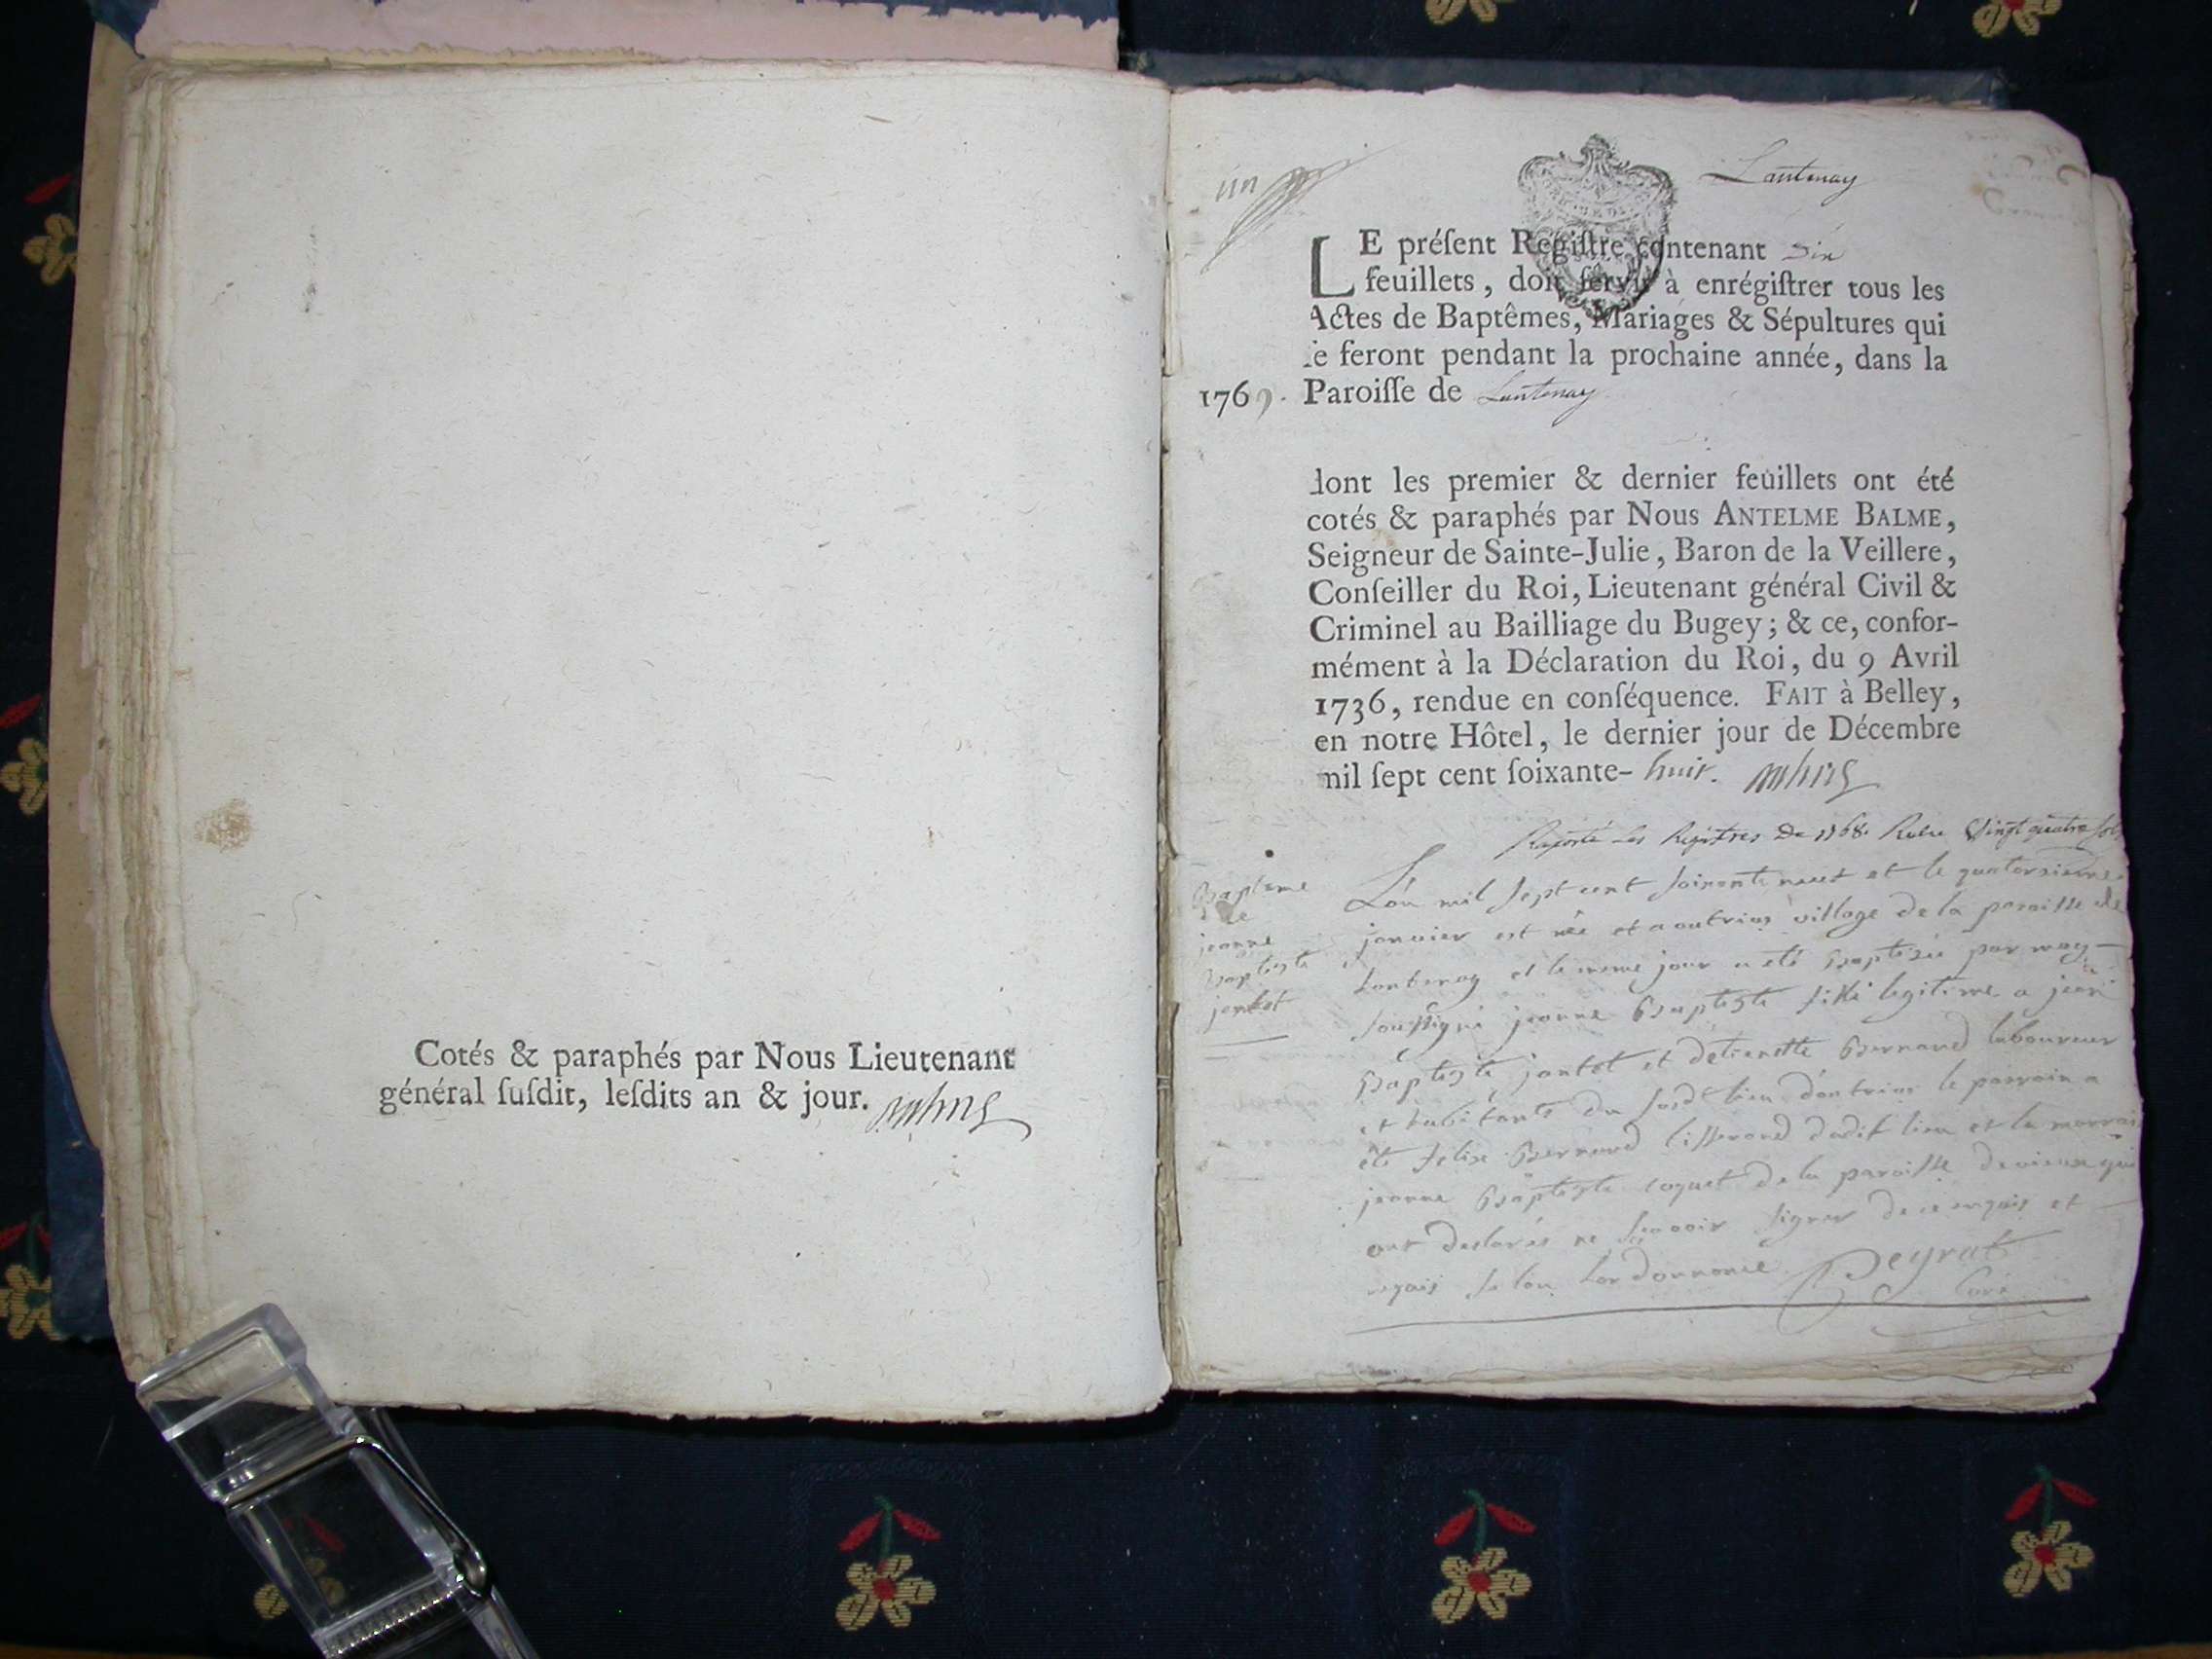 Cotés & paraphés par Nous Lieutenant
général ſuſdit, leſdits an & jour.
un
Lantenay
LE préſent Régiſtre contenant Six
feuillets, doit ſervir à enrégiſtrer tous les
Actes de Baptêmes, Mariages & Sépultures qui
ſe feront pendant la prochaine année, dans la
1769. Paroiſſe de Lantenay
dont les premier & dernier feuillets ont été
cotés & paraphés par Nous ANTELME BALME,
Seigneur de Sainte-Julie, Baron de la Veillere,
Conſeiller du Roi, Lieutenant général Civil &
Criminel au Bailliage du Bugey; & ce, confor-
mément à la Déclaration du Roi, du 9 Avril
1736, rendue en conſéquence. FAIT à Belley,
en notre Hôtel, le dernier jour de Décembre
mil ſept cent ſoixante-huit.
Les Registres De 1768 Vingt quatre
Bapteme
de
jeanne
Baptiste
jantet
L'an mil sept cent soixante neuf et le quatorzieme
janvier est née et a outriaz village de la paroisse de
Lantenay et le meme jour a eté Baptisée par moy
soussigné jeanne Baptiste fille legitime a jean
Baptiste jantet et detienette Bernard laboureur
et habitants du susd lieu doutriaz le parrain a
été felix Bernard tisserand dudit lieu et la marrai
jeanne Baptiste coquet de la paroisse de vieux qui
ont declarés ne sçavoir signer de ce enquis et
requis selon Lordonnance Peyrat
Curé